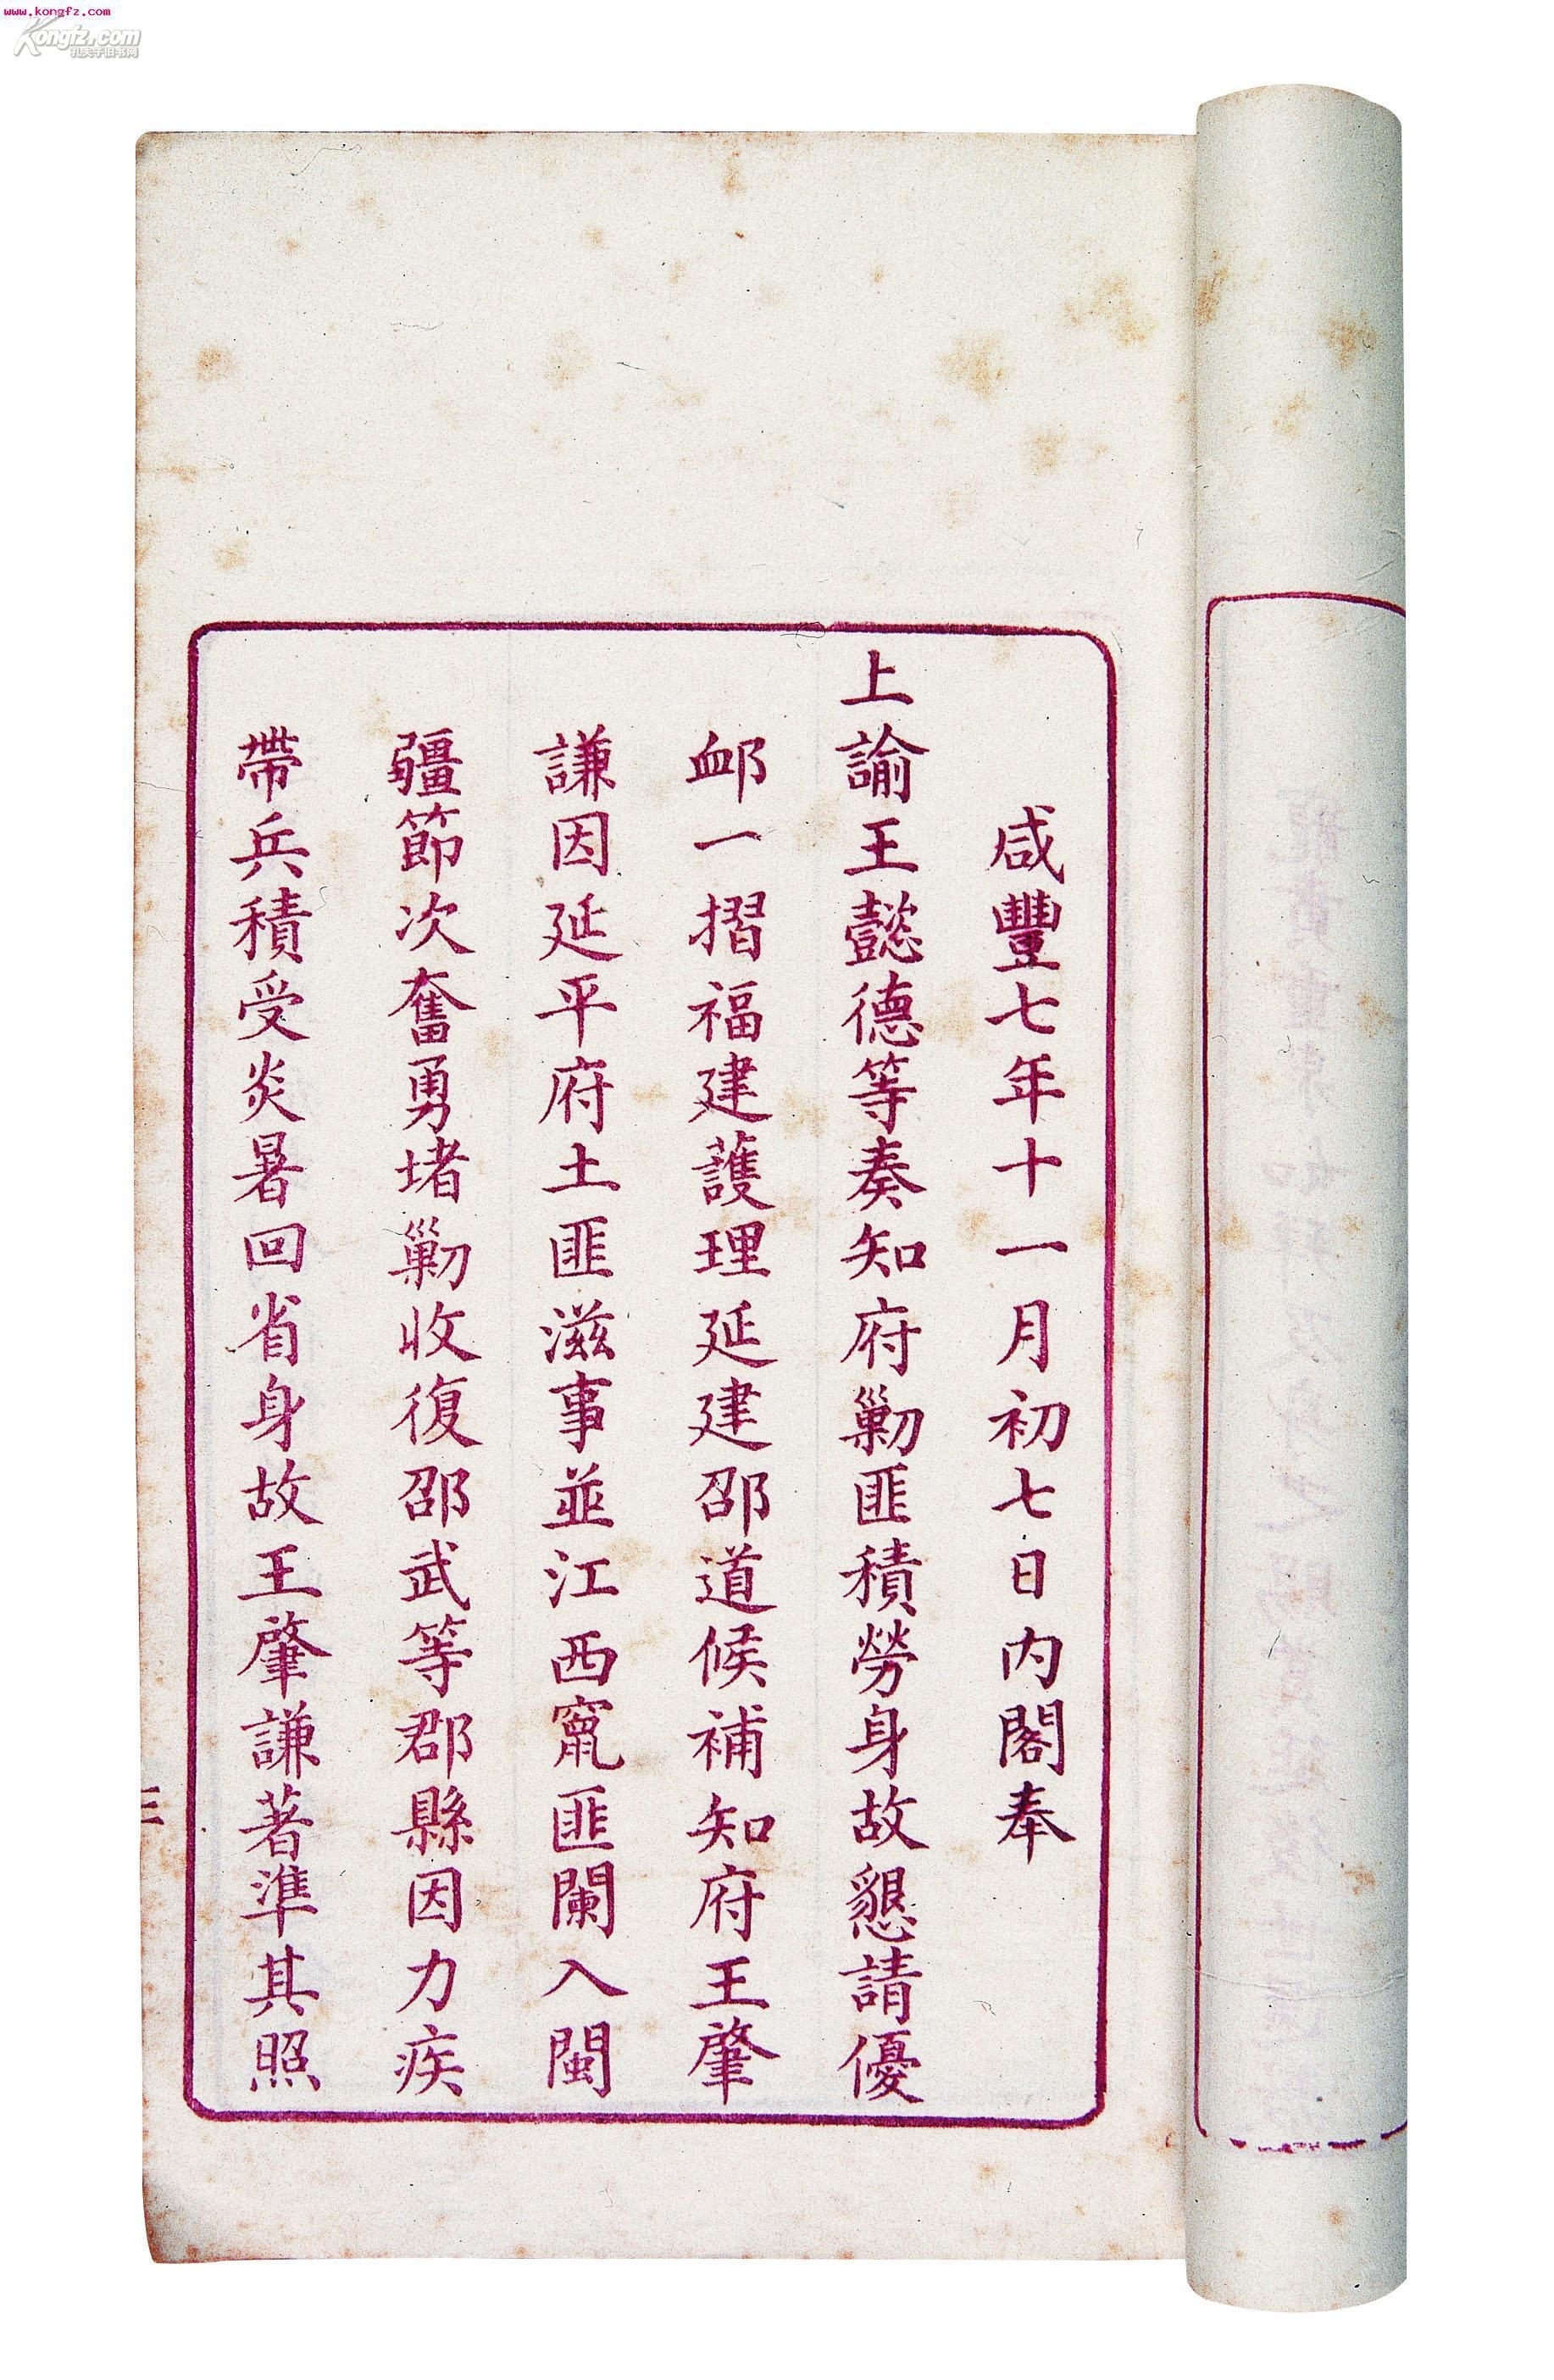 www.kongfz.com
Kongfz.com
孔夫子旧书网
咸豐七年十一月初七日内閣奉
上諭王懿德等奏知府勦匪積勞身故懇請優
卹一摺福建護理延建邵道候補知府王肇
謙因延平府土匪滋事並江西竄匪闌入閩
疆節次奮勇堵勦收復邵武等郡縣因力疾
帶兵積受炎暑回省身故王肇謙著準其照
三